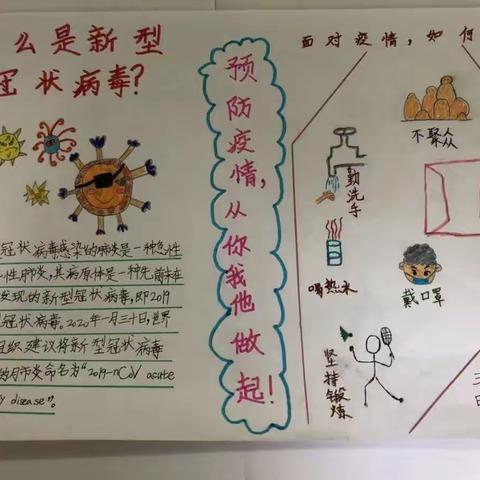 么是新型
冠状病毒?
冠状病毒感染的肺炎是一种急性
性肺炎,其病原体是一种先前未
发现的新型冠状病毒,即2019
冠状病毒。2020年一月三十日,世界
组织建议将新型冠状病毒
的肺炎命名为“2019-nCoV acute
disease”。
预防疫情,从你我他做起!
面对疫情,如何
不聚众
勤洗手
喝热水
戴口罩
坚持锻炼
三